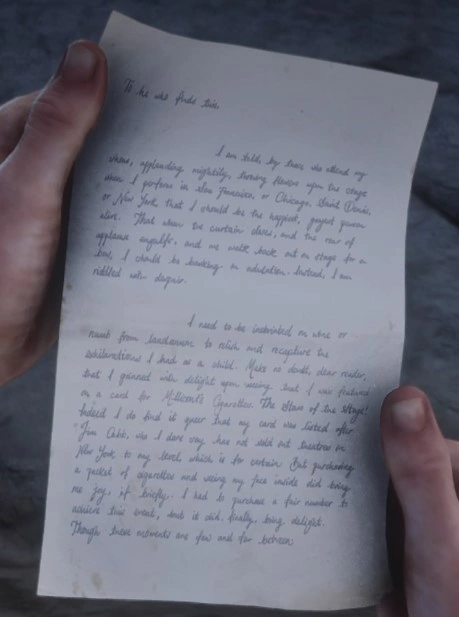 To he who finds this
I am told by those who attend my
shows, applauding mightily, throwing flowers upon the stage
when I perform in San Francisco, or Chicago, Saint Denis,
or New York, that I should be the happiest, gayest person
alive. That when the curtain closes, and the roar of
applause engulfs, and we walk back out on stage for a
bow, I should be basking in adulation. Instead, I am
riddled with despair.
I need to be inebriated on wine or
from to relish and recapture the
exhilarations I had as a child. Make no doubt, dear reader,
that I grinned with delight upon seeing that I was featured
on a card for Cigarettes 'The Stars of the Stage'.
Indeed I do find it queer that my card was listed after
Jim who I dare say has not sold out theatres in
New York to my which is for certain. But purchasing
a packet of cigarettes and seeing my face inside did bring
me joy, if briefly. I had to purchase a fair number to
achieve this event, but it did, finally, bring delight.
Though these moments are few and far between